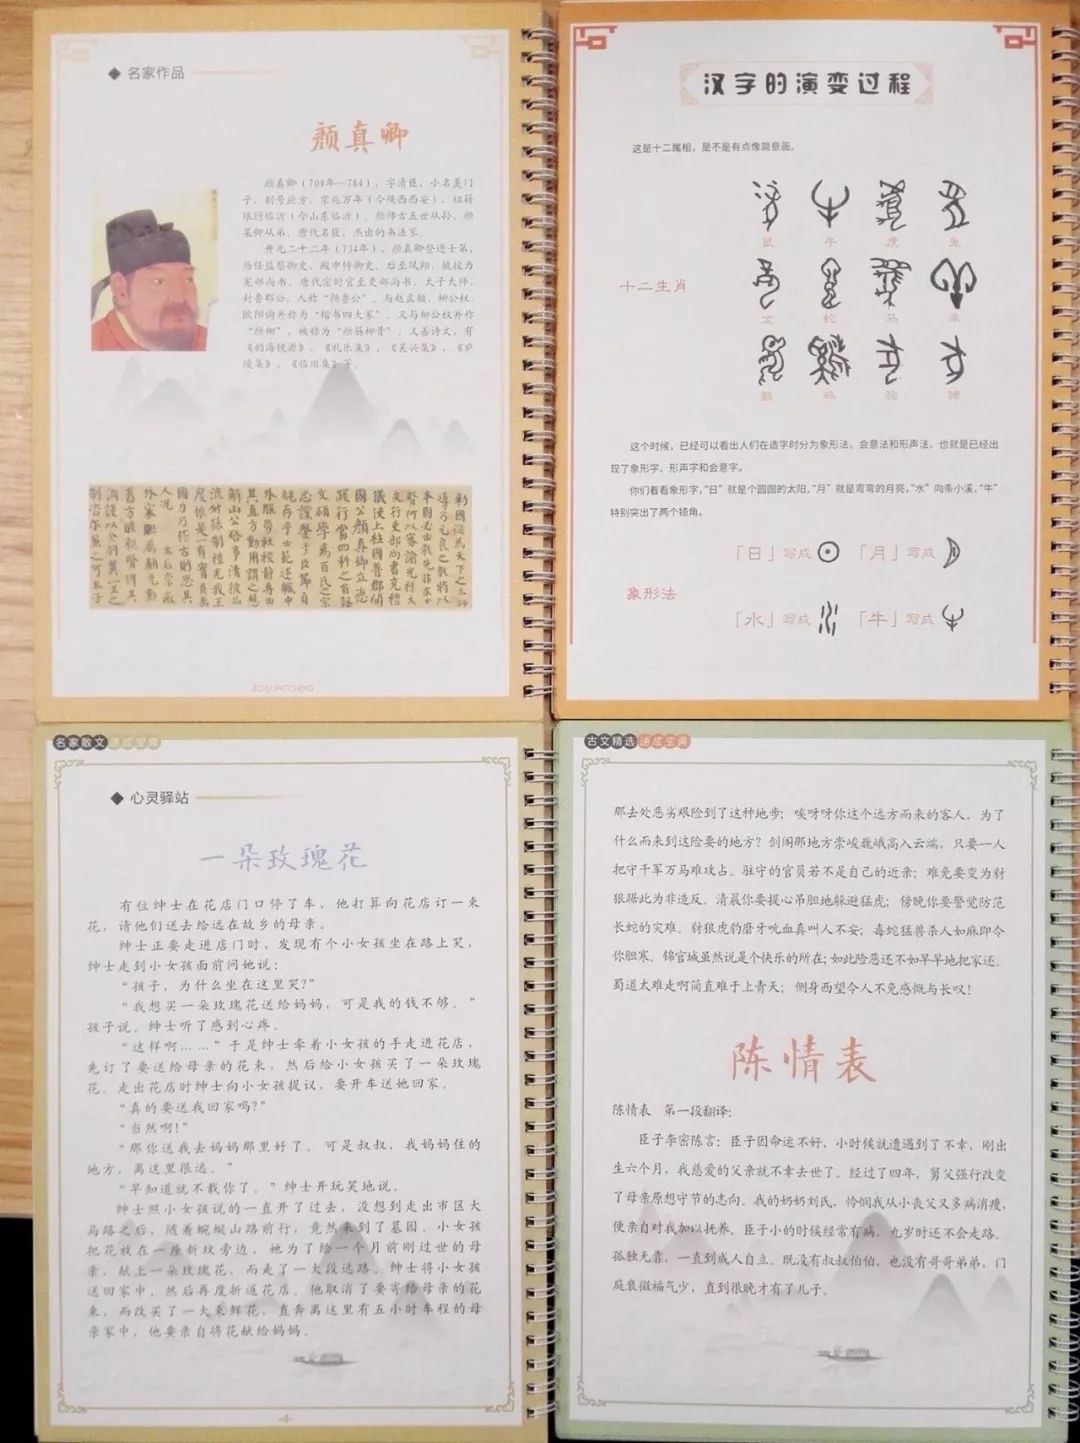 名家作品
颜真卿
颜真卿（709年—784），字清臣，小名羡门
子，别号应方，京兆万年（今陕西西安），祖籍
琅玡临沂（今山东临沂）。颜师古五世从孙、颜
杲卿从弟，唐代名臣，杰出的书法家。
开元二十二年（734年），颜真卿登进士第，
历任监察御史、殿中侍御史，后至凤翔，被授为
宪部尚书，唐代宗时官至吏部尚书、太子太师，
封鲁郡公，人称“颜鲁公”。与赵孟頫、柳公权、
欧阳询并称为“楷书四大家”。又与柳公权并称
“颜柳”，被称为“颜筋柳骨”。又善诗文，有
《韵海镜源》、《礼乐集》、《吴兴集》、《庐
陵集》、《临川集》等。
汉字的演变过程
这是十二属相，是不是有点像简意画。
鼠 牛 虎 兔
十二生肖
龙 蛇 马 羊
猴 鸡 狗 猪
这个时候，已经可以看出人们在造字时分为象形法，会意法和形声法，也就是已经出
现了象形字、形声字和会意字。
你们看看象形字，“日”就是个圆圆的太阳，“月”就是弯弯的月亮，“水”向条小溪，“牛”
特别突出了两个犄角。
「日」写成 「月」写成
象形法
「水」写成 「牛」写成
名家散文速成宝典
心灵驿站
一朵玫瑰花
有位绅士在花店门口停了车，他打算向花店订一束
花，请他们送去给远在故乡的母亲。
绅士正要走进店门时，发现有个小女孩坐在路上哭，
绅士走到小女孩面前问她说：
“孩子，为什么坐在这里哭？”
“我想买一朵玫瑰花送给妈妈，可是我的钱不够。”
孩子说。绅士听了感到心疼。
“这样啊……”于是绅士牵着小女孩的手走进花店，
先订了要送给母亲的花束，然后给小女孩买了一朵玫瑰
花。走出花店时绅士向小女孩提议，要开车送她回家。
“真的要送我回家吗？”
“当然啊！”
“那你送我去妈妈那里好了。可是叔叔，我妈妈住的
地方，离这里很远。”
“早知道就不载你了。”绅士开玩笑地说。
绅士照小女孩说的一直开了过去，没想到走出市区大
马路之后，随着蜿蜒山路前行，竟然来到了墓园。小女孩
把花放在一座新坟旁边，她为了给一个月前刚过世的母
亲，献上一朵玫瑰花，而走了一大段远路。绅士将小女孩
送回家中，然后再度折返花店。他取消了要寄给母亲的花
束，而改买了一大束鲜花，直奔离这里有五小时车程的母
亲家中，他要亲自将花献给妈妈。
4
古文精选速成宝典
那去处恶劣艰险到了这种地步；唉呀呀你这个远方而来的客人，为了
什么而来到这险要的地方？剑阁那地方崇峻巍峨高入云端，只要一人
把守千军万马难攻占。驻守的官员若不是自己的近亲；难免要变为豺
狼踞此为非造反。清晨你要提心吊胆地躲避猛虎；傍晚你要警觉防范
长蛇的灾难。豺狼虎豹磨牙吮血真叫人不安；毒蛇猛兽杀人如麻即令
你胆寒。锦官城虽然说是个快乐的所在；如此险恶还不如早早地把家还。
蜀道太难走啊简直难于上青天；侧身西望令人不免感慨与长叹！
陈情表
陈情表 第一段翻译：
臣子李密陈言：臣子因命运不好，小时候就遭遇到了不幸，刚出
生六个月，我慈爱的父亲就不幸去世了。经过了四年，舅父强行改变
了母亲原想守节的志向。我的奶奶刘氏，怜悯我从小丧父又多病消瘦，
便亲自对我加以抚养。臣子小的时候经常有病，九岁时还不会走路。
孤独无靠，一直到成人自立。既没有叔叔伯伯，也没有哥哥弟弟，门
庭衰微福气少，直到很晚才有了儿子。